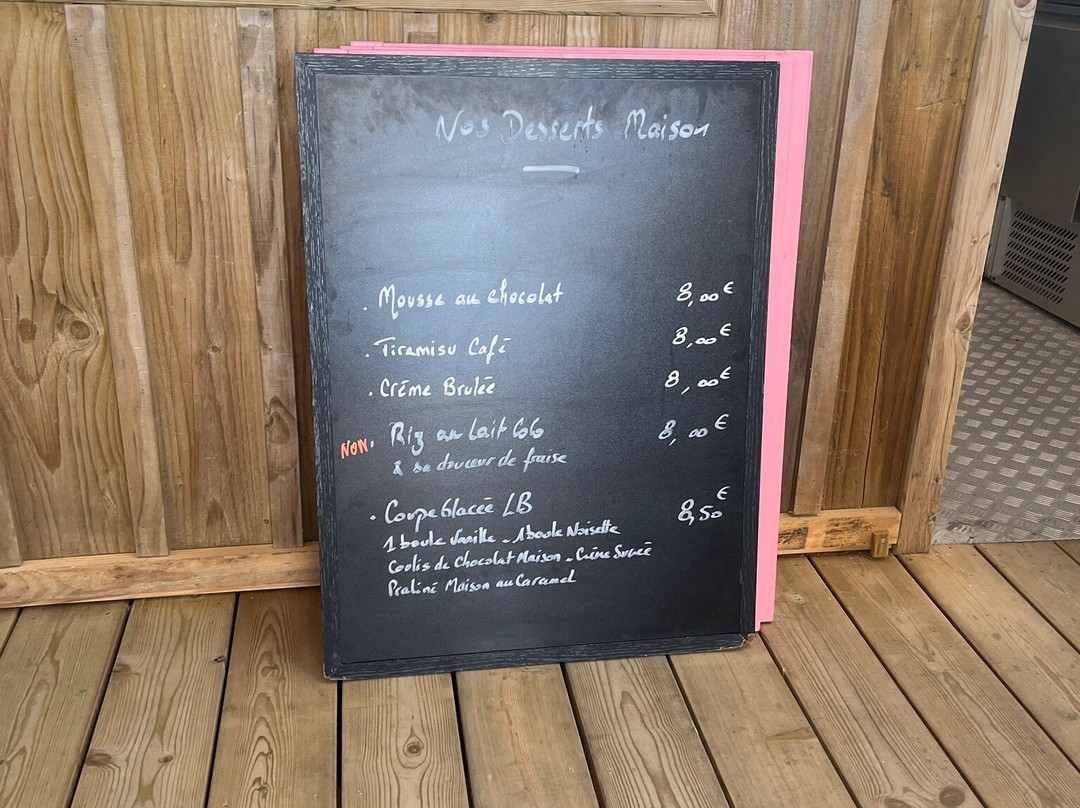 Nos Desserts Maison
. Mousse au chocolat 8,00€
. Tiramisu Café 8,00€
. Crème Brulée 8,00€
NEW. Riz au Lait Coco 8,00€
& sa douceur de fraise
. Coupe Glacée LB 8,50€
1 boule Vanille - 1 boule Noisette
Coulis de Chocolat Maison - Crème Sucrée
Praliné Maison au Caramel